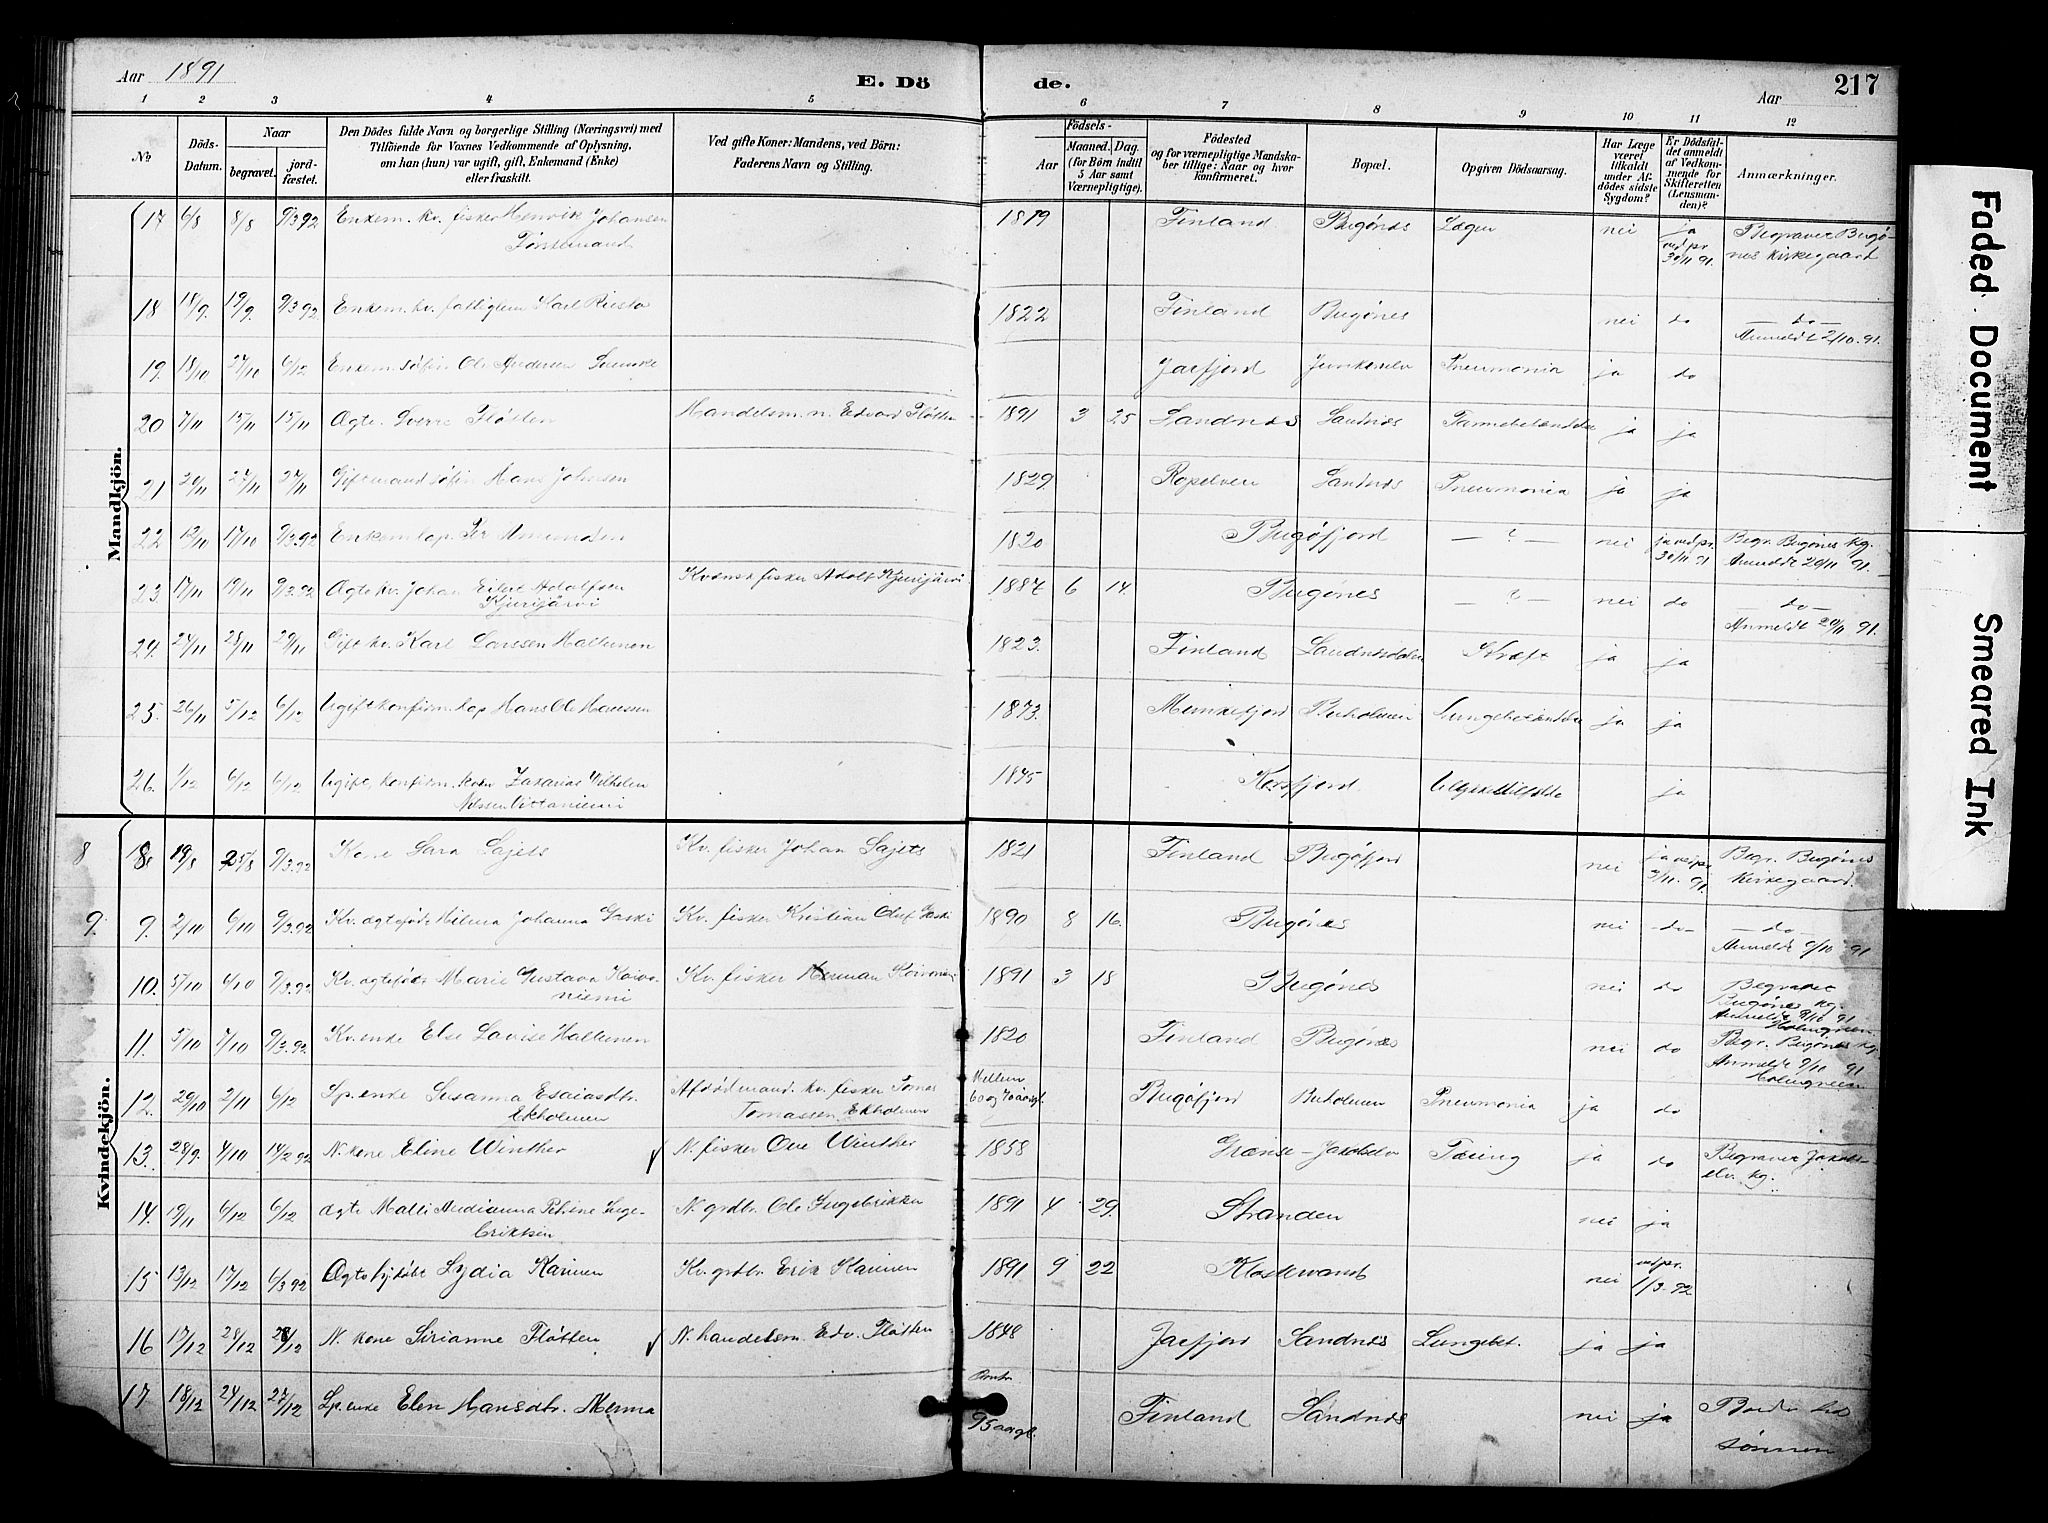 Aar 1891
E. Dö
de.
Aar
217
1 2 3 4 5 6 7 8 9 10 11 12
No
Döds-Datum.
Naar
begravet.
jord-fæstet.
Den Dödes fulde Navn og borgerlige Stilling (Næringsvei) med
Tilföiende for Voxnes Vedkommende af Oplysning,
om han (hun) var ugift, gift, Enkemand (Enke)
eller fraskilt.
Ved gifte Koner: Mandens, ved Börn:
Faderens Navn og Stilling.
Födsels-
Aar
Maaned.
Dag.
(for Börn indtil
5 Aar samt
Værnepligtige).
Födested
og for værnepligtige Mandska-
ber tillige: Naar og hvor
konfirmeret.
Bopæl.
Opgiven Dödsaarsag.
Har Læge
været
tilkaldt
under Af-
dödes sidste
Sygdom?
Er Dödsfal-
det anmeldt
af Vedkom-
mende for
Skifteretten
(Lensman-
den)?
Anmærkninger.
Mandkjön.
17 6/8 8/8 9/3 92 Enkem. kv. fisker Henrik Johansen 1819 Finland Bugönes nei ja Begravet Bugö-
ved pr. 30/11 91. nes Kirkegaard
18 18/9. 19/9. 9/3 92. Enkem. kv. fattiglem Karl 1822 Finland Bugönes nei do — do —
Anmeldt 2/10. 91.
19. 18/10 27/10 6/12 Enkem. söfin Ole Andersen Jarfjord Pneumonia ja do
20 7/11 15/11 15/11 Ægte. Sverre Flötten Handelsm. n. Edvard Flötten 1891 3 25 Sandnes Sandnes ja ja
21 20/11 27/11 27/11 Gift mand söfin Hans Johnsen 1829. Ropelven Sandnes Pneumonia ja ja
22 12/10 17/10 9/3.92 Enkem. lap. Per Amundsen 1820 Bugöfjord — ? — nei ja ved pr. Begr. Bugönes kg.
30/11 91 Anmeldt 29/11 91.
23. 17/11 19/11 9/3.92 Ægte kv. Johan Eilert Adolfsen Kvænsk fisker Adolf Kjurijärvi 1887 6 14. Bugönes — ? — nei do — do —
Kjurijärvi Anmeldt 29/11 91.
24. 24/11 28/11 29/11 Gift kv. Karl Larssen Haltunen 1823. Finland Sandnesdalen Kræft ja ja
25. 26/11 5/12 6/12 Ugift konfirm. lap Hans Ole Hansen 1873. Munkefjord Buholmen ja ja
26. 1/12 6/12 6/12 Ugift, konfirm. kvæn Zakarias Vilhelm 1875 Korsfjord. Ulykkestilfælde ja
Nilssen
Kvindekjön.
8 8 19/8 25/8 9/3.92 Kone Sara Sajets Kv. fisker Johan Sajets 1821 Finland Bugöfjord nei ja ved pr. Begr. Bugönes
91. Kirkegaard.
9. 9. 2/10 6/10 9/3.92 Kv. ægteföd Hilma Johanna Kv. fisker Kristian Oluf 1890 8 16. Bugönes nei — do — — do —
Anmeldt 9/10 91
10. 5/10 6/10 9/3.92 Kv. ægteföd Marie Gustava Koivo- Kv. fisker Herman 1891 3 18 Bugönes nei do Begravet
niemi Bugönes kg.
Holmgreen.
11. 5/10 7/10 9/3.92 Kv. enke Else Lovise Haltunen 1820 Finland Bugönes nei do Begr. Bugönes kg.
Anmeldt 9/10 91
Holmgreen
12. 29/10 2/11 6/12 Lp. enke Susanna Esaiasdtr. Afdöd mand. kv. fisker Tomas Mellem Bugöfjord Buholmen Pneumonia ja do
Ekholmen Tomassen Ekholmen 60 og 70 aar gl.
13. 28/9. 4/10 14/2 92 N. kone Eline Winther N. fisker Ove Winther 1858 Grænse-Jakobselv Tæring ja do Begravet Jakobs-
elv. kg.
14. 19/11 6/12 6/12 ægte Malli Andianna Petrine Inge- N. grdbr. Ole Ingebriktsen 1891 4 29. Stranden nei ja
briktsen
15 13/12 17/12 6/3 92 Lydia Karinen Kv. grdbr. Erik Karinen 1891 9 22 Klostervand nei ved pr.
1/3-92
16 17/12 28/12 28/12 N. kone Sirianne Flötten N. handelsm. Edv. Flötten 1848 Jarfjord Sandnes Lungebet. ja ja
17 18/12 24/12 27/12 Lp. enke Elen Hansdtr. Menna Omtr. Finland Sandnes nei ja
95 aar gl. sönnen
Faded Document
Smeared Ink